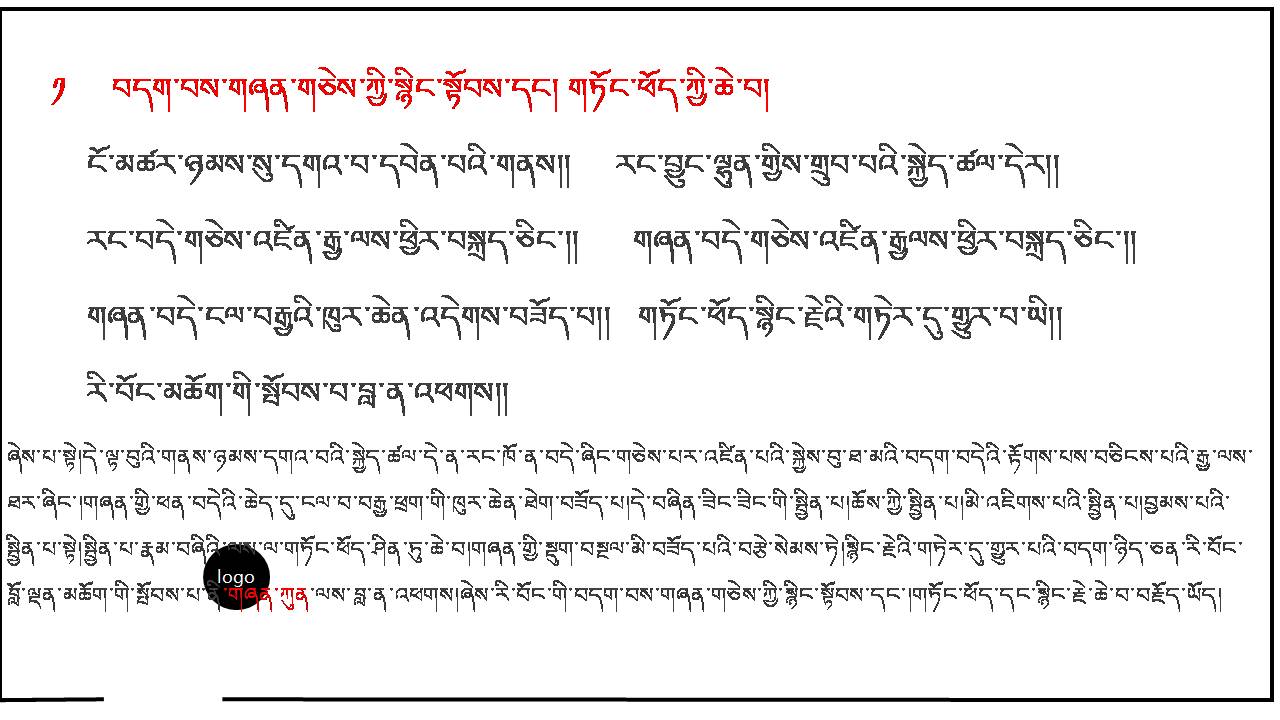 ༡ བདག་བས་གཞན་གཅེས་ཀྱི་སྙིང་སྟོབས་དང། གཏོང་ཕོད་ཀྱི་ཆེ་བ།
ངོ་མཚར་ཉམས་སུ་དགའ་བ་དབེན་བའི་གནས།། རང་བྱུང་ལྷུན་གྱིས་གྲུབ་པའི་སྐྱེད་ཚལ་དེར།།
རང་བདེ་གཅེས་འཛིན་རྒྱ་ལས་ཕྱིར་བསྐྲད་ཅིང་།། གཞན་བདེ་གཅེས་འཛིན་རྒྱལས་ཕྱིར་བསྐྲད་ཅིང་།།
གཞན་བདེ་ངལ་བརྒྱའི་ཁུར་ཆེན་འདེགས་བཟོད་པ།། གཏོང་ཕོད་སྙིང་རྗེའི་གཏེར་དུ་གྱུར་པ་ཡི།།
རི་བོང་མཆོག་གི་སྤོབས་པ་བླ་ན་འཕགས།།
ཞེས་པ་སྟེ།དེ་ལྟ་བུའི་གནས་ཉམས་དགའ་བའི་སྐྱེད་ཚལ་དེ་ན་རང་ཁོ་ན་བདེ་ཞིང་གཅེས་པར་འཛིན་པའི་སྐྱེས་བུ་ཐ་མའི་བདག་བདེའི་རྟོགས་པས་བཅིངས་པའི་རྒྱ་ལས་
ཐར་ཞིང་།གཞན་གྱི་ཕན་བདེའི་ཆེད་དུ་ངལ་བ་བརྒྱ་ཕྲག་གི་ཁུར་ཆེན་ཐེག་བཟོད་པ།དེ་བཞིན་ཟིང་ཟིང་གི་སྦྱིན་པ།ཆོས་ཀྱི་སྦྱིན་པ།མི་འཇིགས་པའི་སྦྱིན་པ།བྱམས་པའི་
སྦྱིན་པ་སྟེ།སྦྱིན་པ་རྣམ་བཞིའི་ལས་ལ་གཏོང་ཕོད་ཤིན་ཏུ་ཆེ་བ།གཞན་གྱི་སྡུག་བསྔལ་མི་བཟོད་པའི་བརྩེ་སེམས་ཏེ།སྙིང་རྗེའི་གཏེར་དུ་གྱུར་པའི་བདག་ཉིད་ཅན་རི་བོང་
བློ་ལྡན་མཆོག་གི་སྤོབས་པ་ནི་གཞན་ཀུན་ལས་བླ་ན་འཕགས།ཞེས་རི་བོང་གི་བདག་བས་གཞན་གཅེས་ཀྱི་སྙིང་སྟོབས་དང་།གཏོང་ཕོད་དང་སྙིང་རྗེ་ཆེ་བ་བརྗོད་ཡོད།
logo